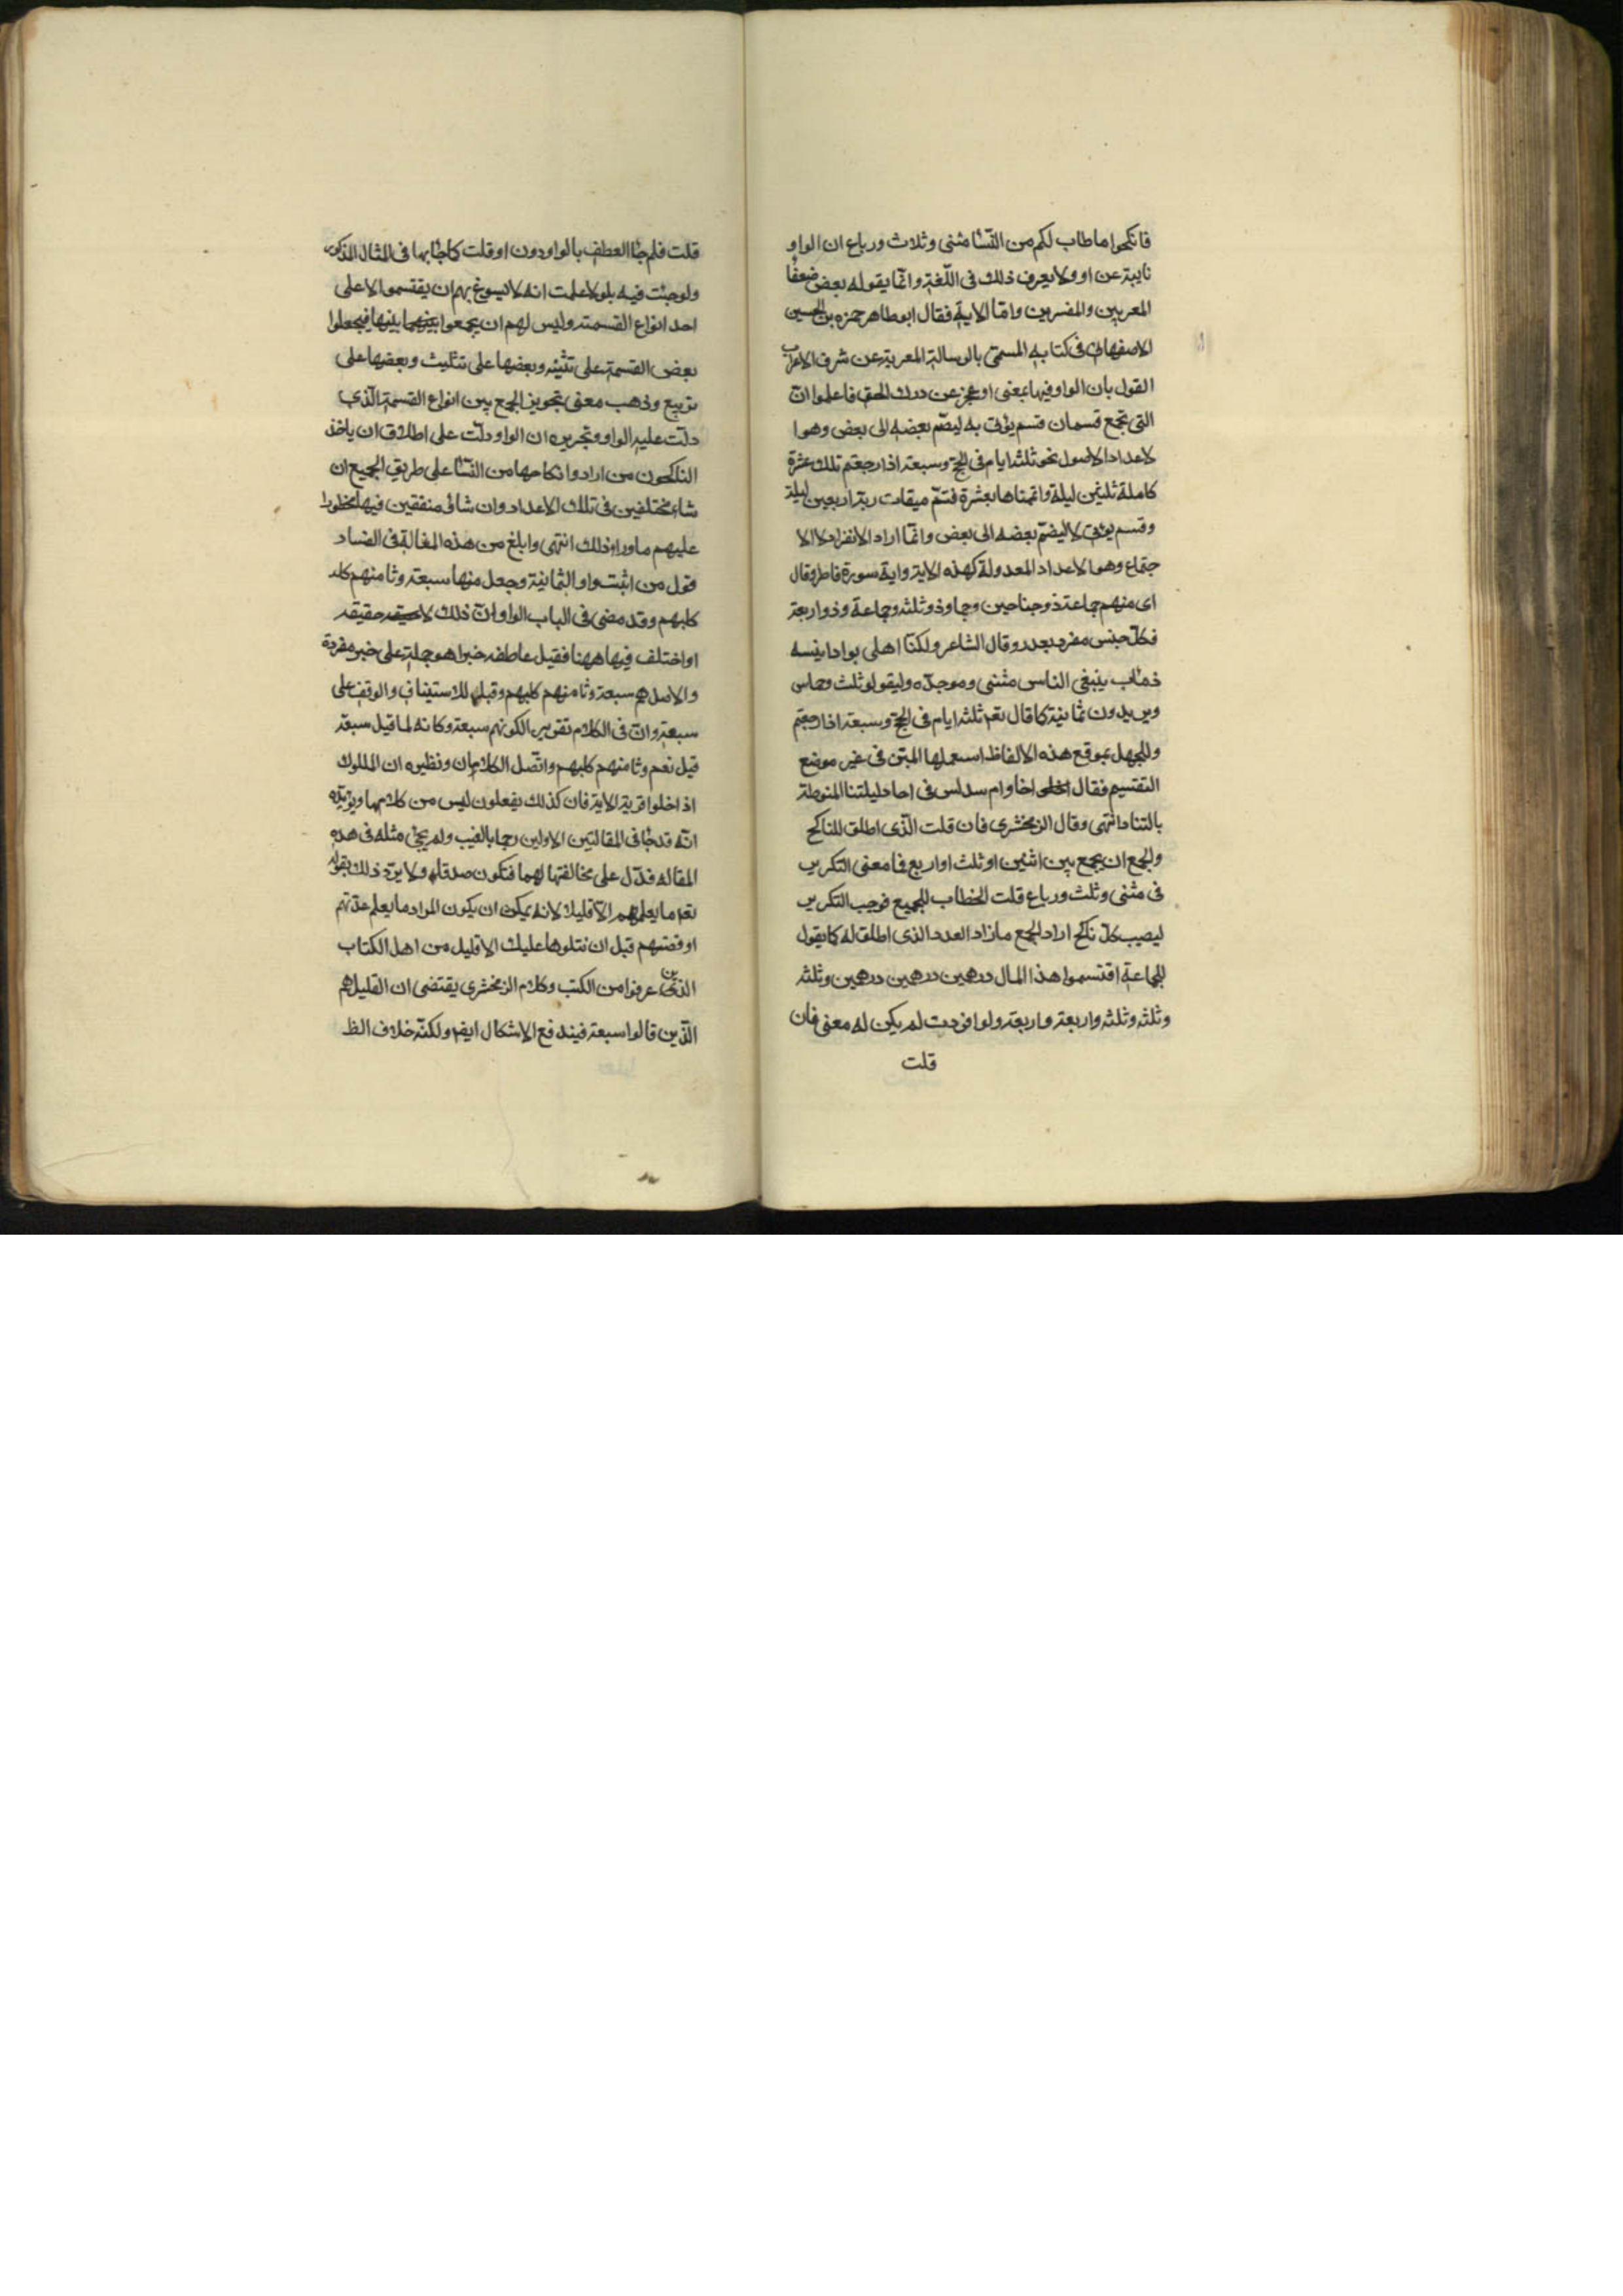 فانكحوا ما طاب لكم من النسا مثنى وثلاث ورباع ان الواو
نايبة عن او ولا يعرف ذلك فى اللّغة وانّما يقوله بعض ضعفا
المعربين والمفسرين وامّا الاية فقال ابوطاهر حمزه بن الحسين
الاصفهانى فى كتابه المسمّى بالرسالة المعربة عن شرف الاعراب
القول بان الواو فيها بمعنى او عجز عن درك الحق فاعلموا انّ
التى تجمع قسمان قسم يؤتى به ليضمّ بعضه الى بعض وهوا
لاعداد الاصول نحو ثلثه ايام فى الحج وسبعة اذا رجعتم تلك عشرة
كاملة ثلثين ليلة واتممناها بعشرة فتمّ ميقات ربه اربعين ليلة
وقسم يؤتى لا ليضمّ بعضه الى بعض وانّما اراد الانفراد لا الا
جتماع وهو الاعداد المعدولة كهذه الاية واية سورة فاطر وقال
اى منهم جماعة ذو جناحين وجاوذ وثلثه وجماعة وذو اربعة
فكلّ جنس مفرد بعدد وقال الشاعر ولكنّا اهلى بواد انيسه
ذئاب يبنغى الناس مثنى وموحدّه وليقولو ثلث وخماس
ويريدون ثمانية كما قال تعم ثلثه ايام فى الحج وسبعة اذا رجعتم
وللجهل بموقع هذه الالفاظ استعملها المبتن فى غير موضع
التقتسيم فقال احاد ام سداس فى احاد ليلتنا المنوطة
بالتناد انتهى وقال الزمخشرى فان قلت الّذى اطلق للناكح
والجمع ان يجمع بين اثنين او ثلث او اربع فما معنى التكرير
فى مثنى وثلث ورباع قلت الخطاب للجميع فوجب التكرير
ليصيب كلّ ناكح اراد الجمع ما زاد العدد الذى اطلق له كما يقول
للجماعة اقتسموا هذا المال درهمين درهمين درهمين وثلثه
وثلثه وثلثه واربعة واربعة ولو افردت لم يكن له معنى فان
قلت
قلت فلم جاالعطف بالواو دون او قلت كما جا بها فى المثال المذكور
ولو جئت فيه باو لاعلمت انه لا يسوغ بهم ان يقتسموا الا على
احد انواع القسمته وليس لهم ان يجمعوا بينهما بينها فيجعلوا
بعض القسمة على تثنيه وبعضها على تثليث وبعضها على
تربيع وذهب معنى تجويز الجمع بين انواع القسمة الّذى
دلّت عليه الواو وتحريره ان الواو دلّت على اطلاق ان ياخذ
الناكحون من ارادوا نكاحها من النّسا على طريق الجميع ان
شاء مختلفين فى تلك الاعداد وان شاؤ متفقين فيها محظورا
عليهم ماوراء ذلك انتهى وابلغ من هذه المغالة فى الفساد
قول من اثبت واو الثمانية وجعل منها سبعة وثامنهم كلد
كلبهم وقد مضى فى الباب الواو وانّ ذلك لا حقيقه
او اختلف فيها ههنا فقيل عاطفه خبرا هو جملة على خبر مفردة
والاصل هم سبعة وثامنهم كلبهم وقيل للاستيناف والوقف على
سبعة وانّ فى الكلام تقرير الكونهم سبعة وكانه لما قيل سبعة
قيل نعم وثامنهم كلبهم واتّصل الكلامان ونظيره ان الملوك
اذا دخلوا قرية الاية فان كذلك يفعلون ليس من كلامها ويؤيّده
انّه قد جا فى المقالتين الاولين رجما بالغيب ولم يجئ مثله فى هذه
المقاله فدّل على مخالفتها لهما فتكون صدقا ولا يردّ ذلك بقوله
تعم ما يعلمهم الاّ قليلا لانه يمكن ان يكون المراد ما يعلم عدّتهم
او قصّتهم قبل ان نتلوها عليك الا قليل من اهل الكتاب
الذين عرفوا من الكتب وكلام الزمخشرى يقتضى ان القليل هم
الّذين قالوا سبعة فيندفع الاشكال ايضا ولكنّه خلاف الظ